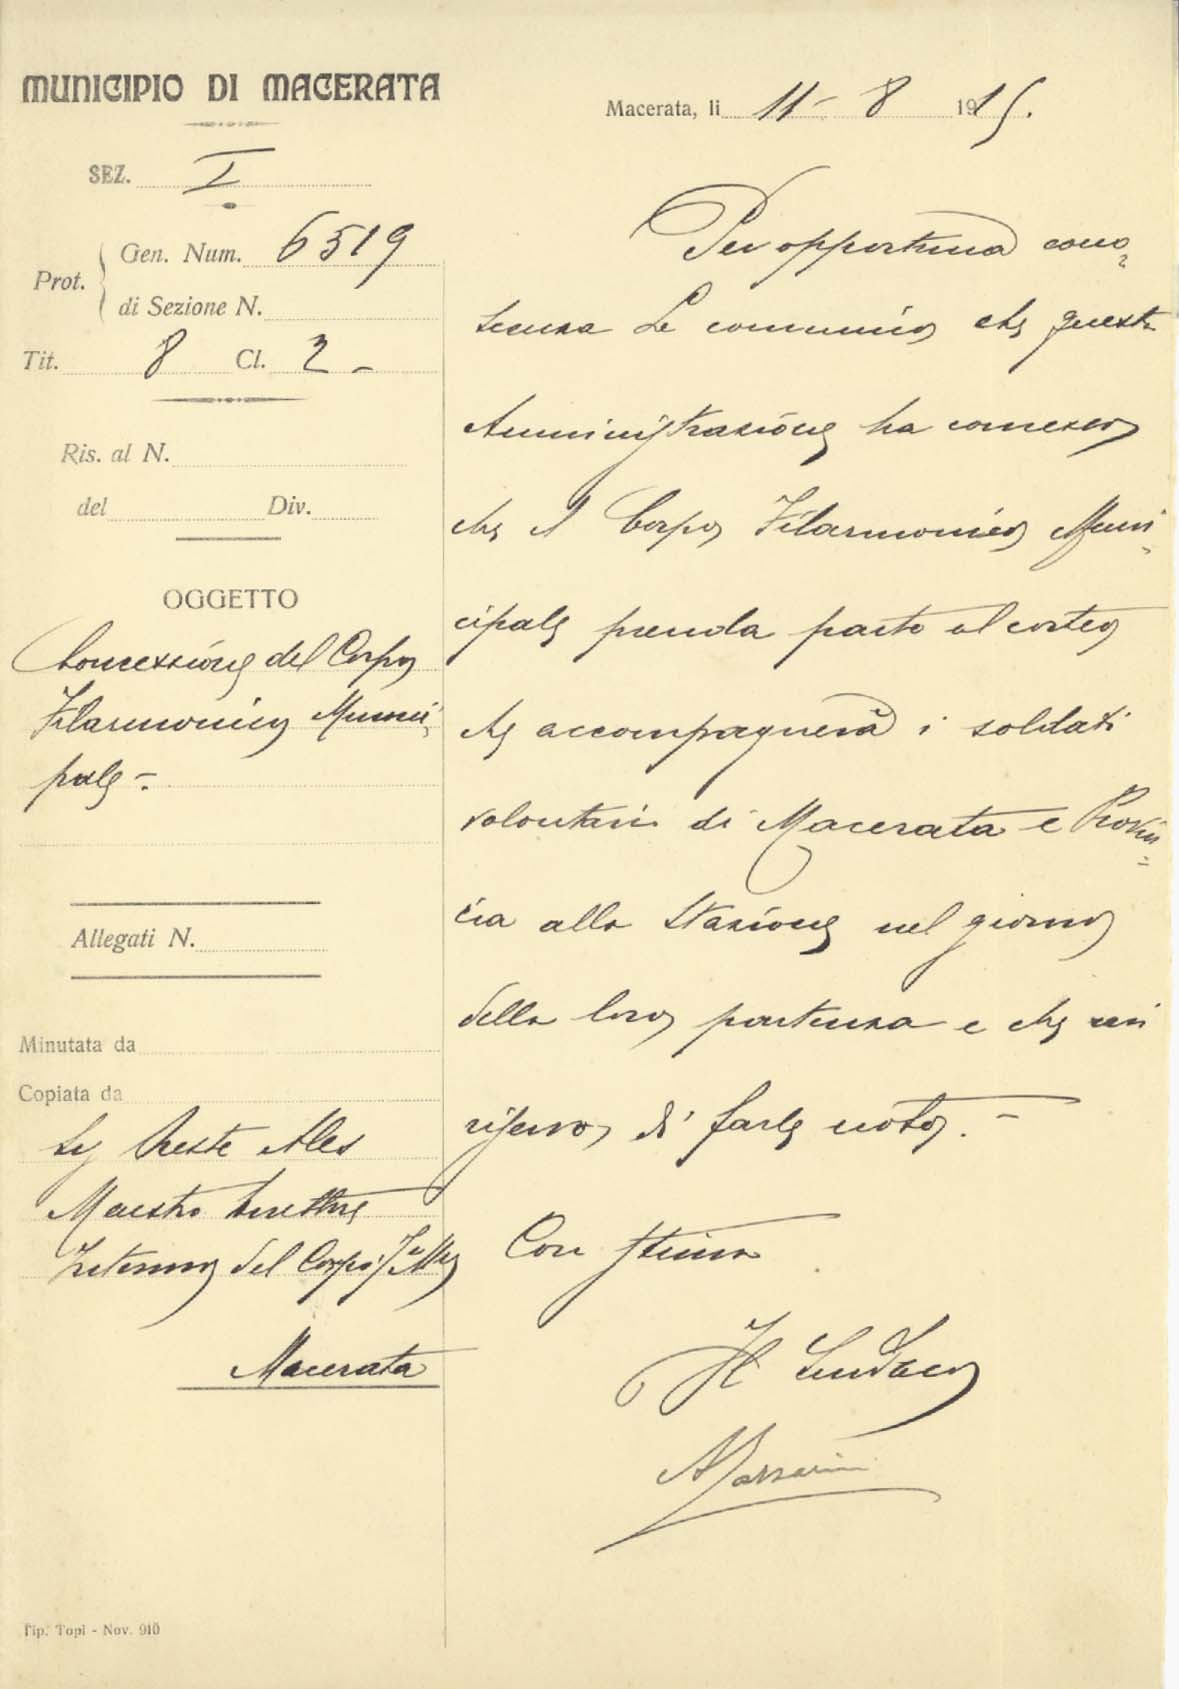 MUNICIPIO DI MACERATA
SEZ. I
Prot.
Gen. Num. 6519
di Sezione N.
Tit. 8 Cl. 2 -
Ris. al N.
del Div.
OGGETTO
Concessione del Corpo
Filarmonico Muni-
pale -
Allegati N.
Minutata da
Copiata da
Sig Oreste
Maestro Direttore
Interino del Corpo
Macerata
Tip. Topi - Nov. 910
Macerata, li 11 - 8 1915.
Per opportuna cono-
scenza Le comunico che questa
Amministrazione ha concesso
che il Corpo Filarmonico Muni-
cipale prenda parte al corteo
che accompagnerà i soldati
volontari di Macerata e Provin-
cia alla Stazione nel giorno
della loro partenza e che mi
riservo di farle noto. -
Con stima
Il Sindaco